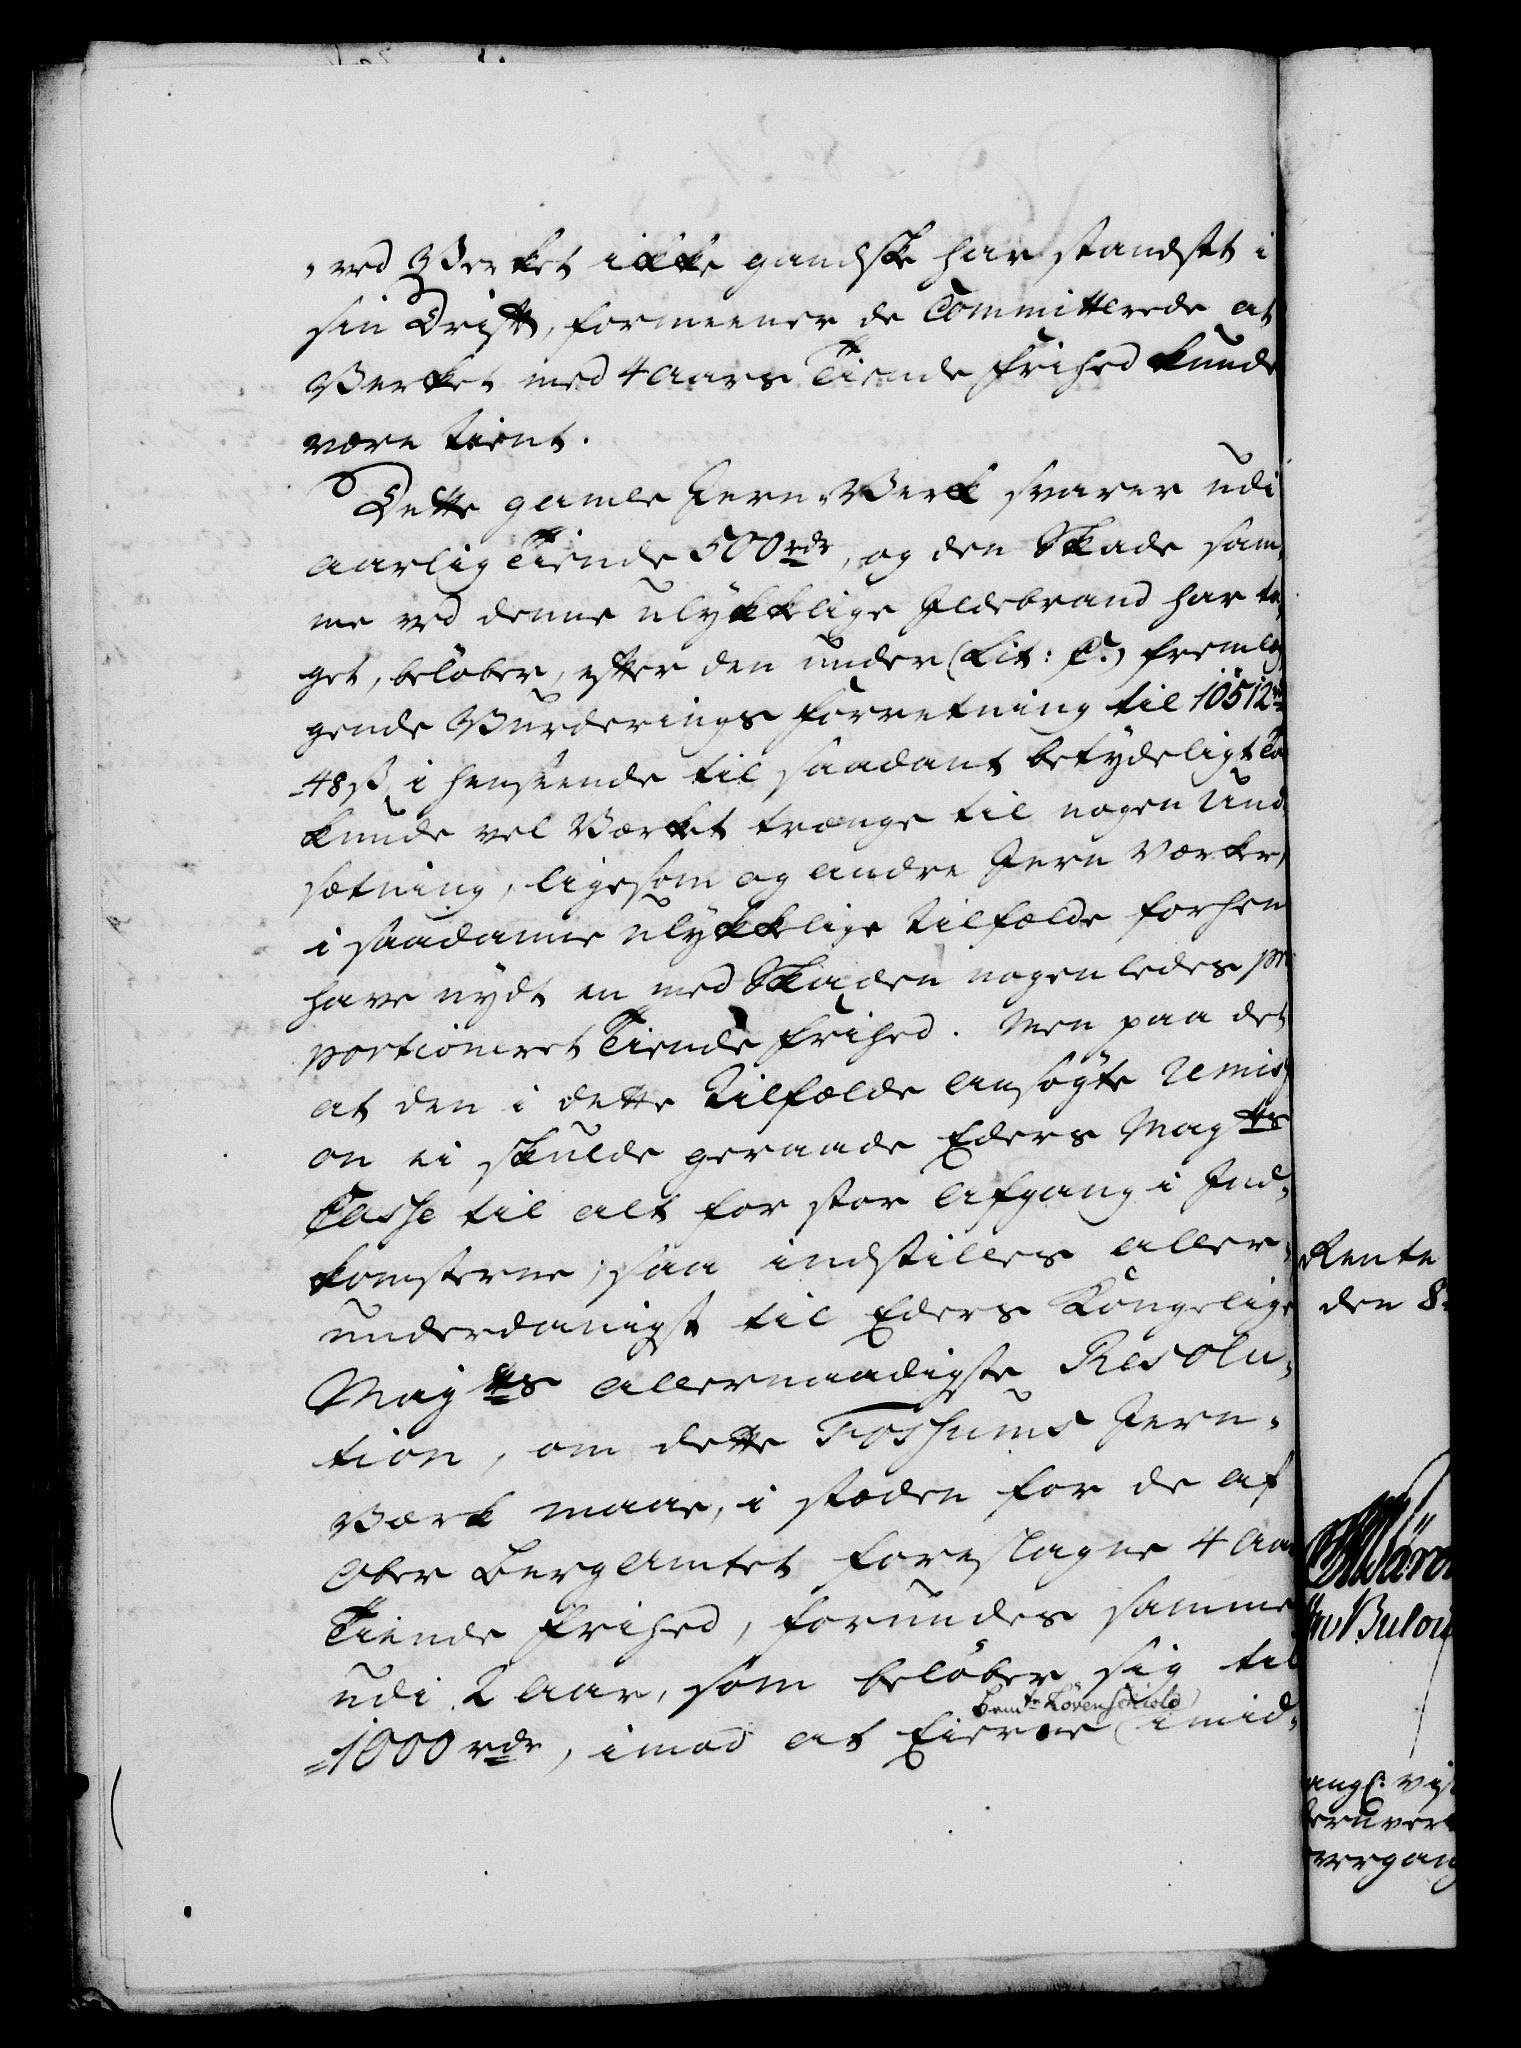 , ved Verket ikke gandske har standset i
sin Drift, formeener de Committerede at
Verket med 4 Aars Tiende Frihed kunde
være tient.
Dette gamle Jern-Verk svarer udi
aarlig Tiende 500 rdr, og den Skade sam,
me ved denne ulykkelige Ildebrand har ta,
get, beløber, efter den under (Lit: C.) fremlig,
gende Vurderings Forretning til 10512 rdr
48 ß, i henseende til saadant betydeligt Ta
kunde vel Værket trænge til nogen Und
sætning, ligesom og andre Jern Værker,
i saadanne ulykkelige Tilfælde forhen
have nydt en med Skaden nogenledes pro
portioneret Tiende Frihed. Men paa det
at den i dette Tilfælde ansøgte Remiss
on ei skulde geraade Eders Mayts
Casse til alt for stor Afgang i Ind,
komsterne; saa indstilles aller,
underdanigst til Eders Kongelige
Mayts allernaadigste Resolu,
tion, om dette Fossums Jern-
Værk maae, i stæden for de af
Ober Bergamtet foreslagne 4 Aar
Tiende Frihed, forundes samme
udi 2 Aar, som beløber sig til
Bemte Løvenschiold
1000 rdr, imod at Eierne imid-
Rente
den 8
Bülow
angl: vis
vergang